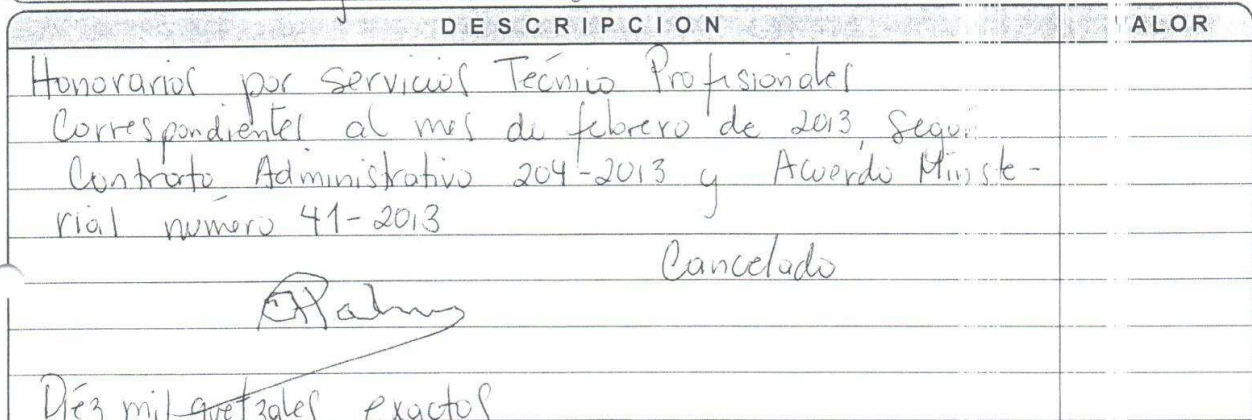 DESCRIPCION VALOR
Honorarios por Servicios Técnico Profisionales
Correspondientes al mes de febrero de 2013, Según
Contrato Administrativo 204-2013 y Acuerdo Ministe-
rial número 41-2013
Cancelado
Diéz mil quetzales exactos